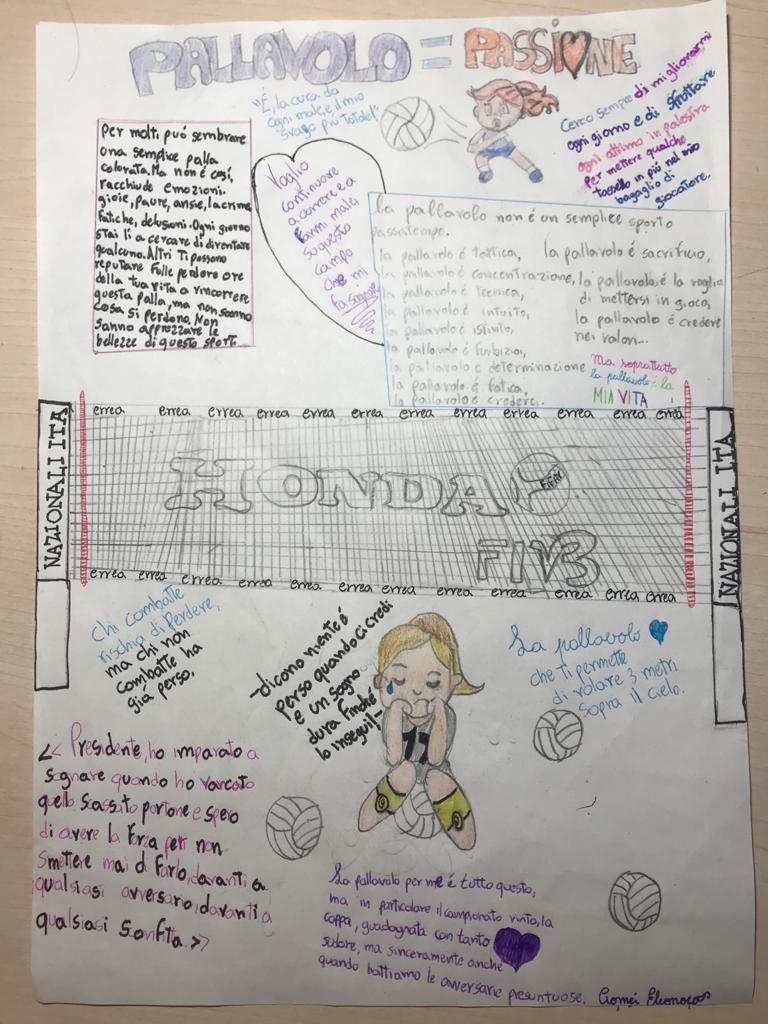 PALLAVOLO = PASSIONE
"È la cura da
ogni male, e il mio
svago più totale!"
Cerco sempre di migliorarmi
ogni giorno e di sfruttare
ogni attimo in palestra
per mettere qualche
tassello in più nel mio
bagaglio di
giocatore.
Per molti può sembrare
una semplice palla
colorata. Ma non è così,
racchiude emozioni.
gioie, paure, ansie, lacrime
fatiche, delusioni. Ogni giorno
stai lì a cercare di diventare
qualcuno. Altri ti possono
reputare folle perdere ore
della tua vita a rincorrere
questa palla, ma non sanno
cosa si perdono. Non
sanno apprezzare le
bellezze di questo sport.
Voglio
continuare
a correre e a
farmi male
su questo
campo
che mi
fa sognare
la pallavolo non è un semplice sport o
passatempo.
la pallavolo è tattica,
la pallavolo è concentrazione,
la pallavolo è tecnica,
la pallavolo è intuito,
la pallavolo è istinto,
la pallavolo è furbizia,
la pallavolo è determinazione
la pallavolo è fatica,
la pallavolo è credere..
la pallavolo è sacrificio,
la pallavolo è la voglia
di mettersi in gioco,
la pallavolo è credere
nei valori...
ma soprattutto
la pallavolo è la
MIA VITA
NAZIONALI ITA
errea errea errea errea errea errea errea errea errea errea errea errea
HONDA
FIV3
errea errea errea errea errea errea errea errea errea errea errea errea
NAZIONALI ITA
Chi combatte
rischia di perdere,
ma chi non
combatte ha
già perso.
-dicono niente è
perso quando ci credi
e un sogno
dura finché
lo insegui!-
La pallavolo
che ti permette
di volare 3 metri
sopra il cielo.
17
<< Presidente, ho imparato a
sognare quando ho varcato
quello scassato portone e spero
di avere la forza per non
smettere mai di farlo, davanti a
qualsiasi avversario, davanti a
qualsiasi sconfitta. >>
La pallavolo per me è tutto questo,
ma in particolare il campionato vinto, la
coppa, guadagnata con tanto
sudore, ma sinceramente anche
quando battiamo le avversarie presuntuose.